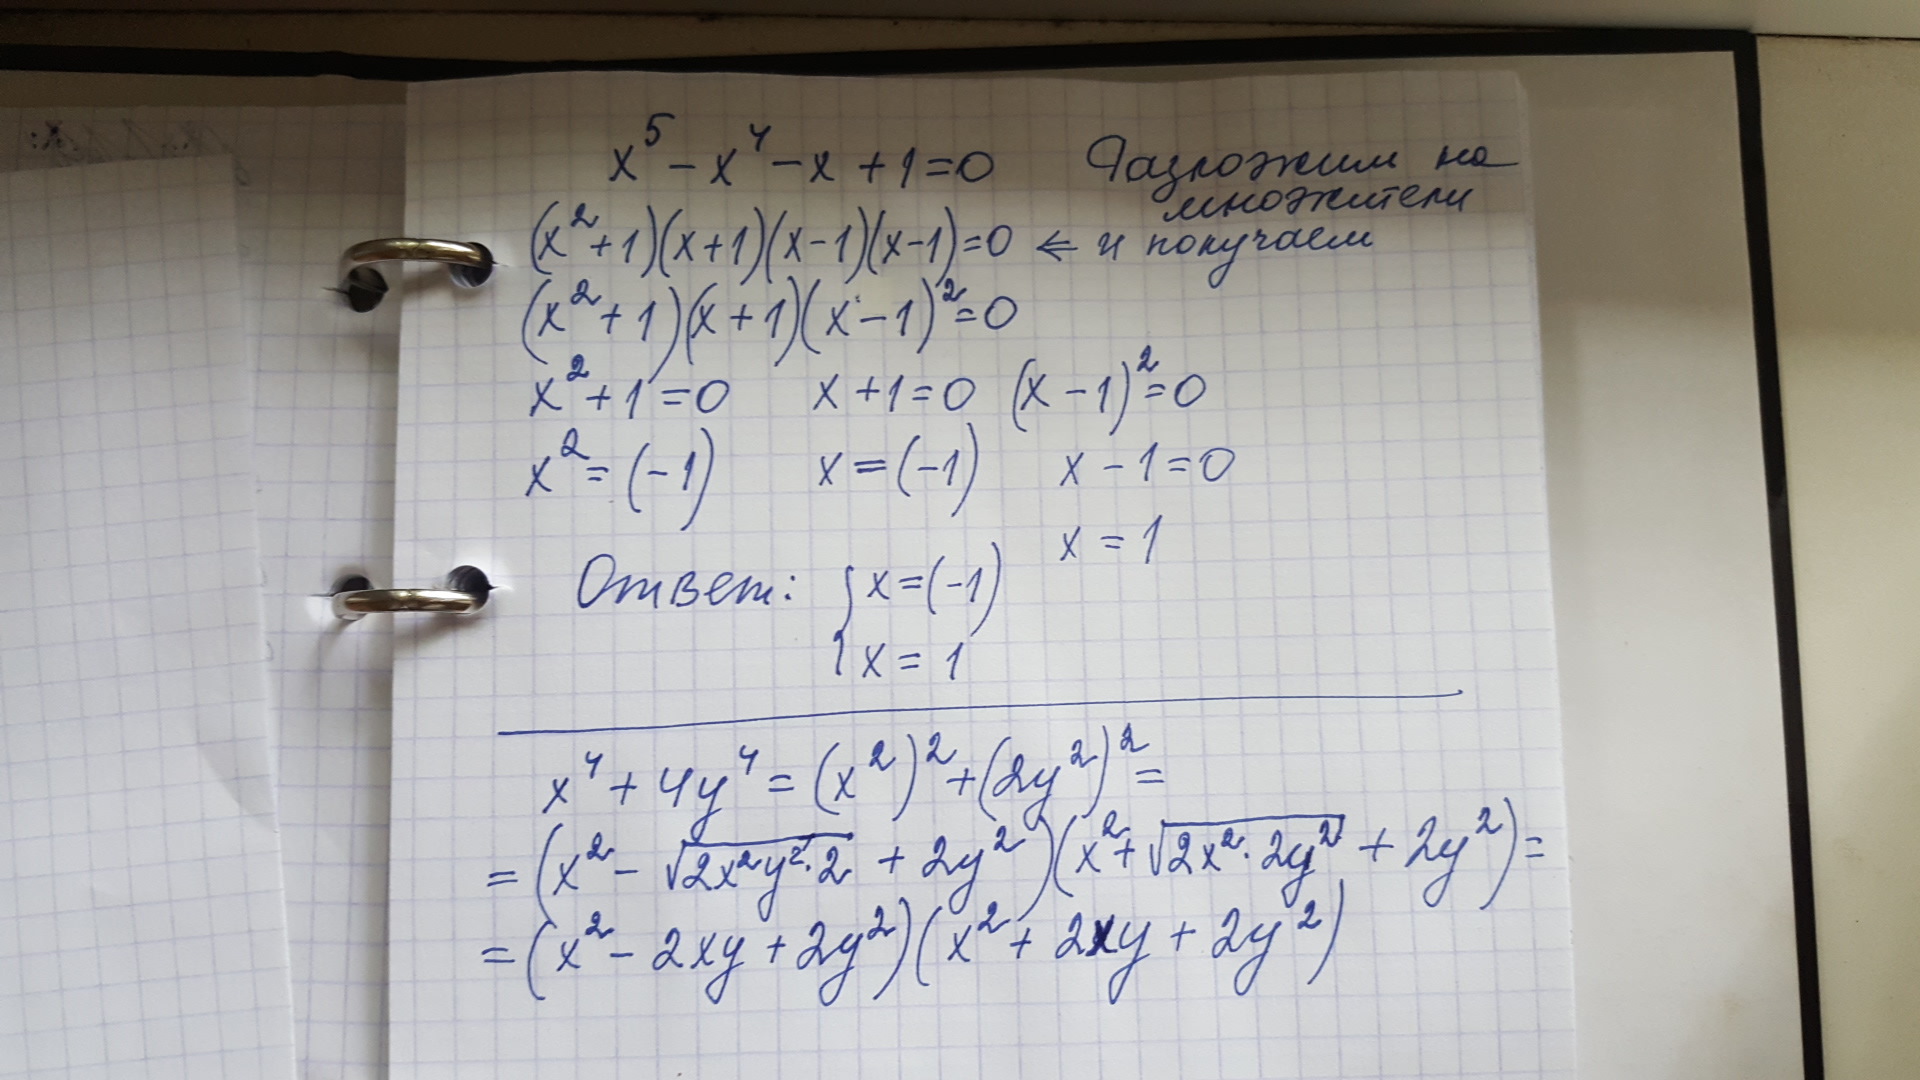 x⁵ − x⁴ − x + 1 = 0 Разложим на
множители
(x² + 1)(x + 1)(x − 1)(x − 1) = 0 ⇐ и получаем
(x² + 1)(x + 1)(x − 1)² = 0
x² + 1 = 0 x + 1 = 0 (x − 1)² = 0
x² = (−1) x = (−1) x − 1 = 0
x = 1
Ответ: { x = (−1)
x = 1
x⁴ + 4y⁴ = (x²)² + (2y²)² =
= (x² − √(2x²y²·2) + 2y²)(x² + √(2x²·2y²) + 2y²) =
= (x² − 2xy + 2y²)(x² + 2xy + 2y²)